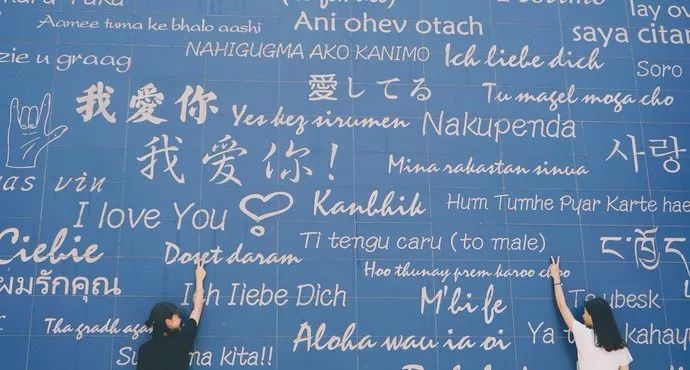 Aamee tuma ke bhalo aashi
Ani ohev otach
saya citan
zie u graag
NAHIGUGMA AKO KANIMO
Ich liebe dich
Soro
我愛你
愛してる
Tu magel moga cho
Yes kez sirumen
Nakupenda
我爱你!
Mina rakastan sinua
사랑
vin
I love You
Kanbhik
Hum Tumhe Pyar Karte hae
Ciebie
Doset daram
Ti tengu caru (to male)
Hoo thunay prem karoo cho
ผมรักคุณ
Ich liebe Dich
M'bi fe
Ta
ubesk
Tha gradh
Aloha wau ia oi
Ya
kahayu
kita!!